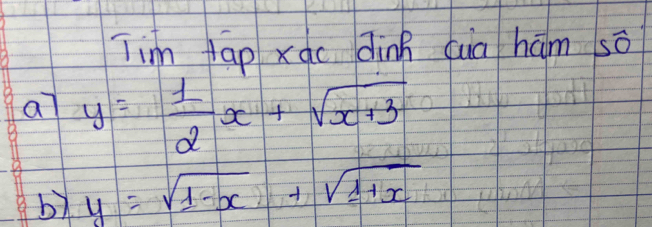 Tìm tập xác định của hàm số
a) y = \frac{1}{2}x + \sqrt{x+3}
b) y = \sqrt{1-x} + \sqrt{1+x}